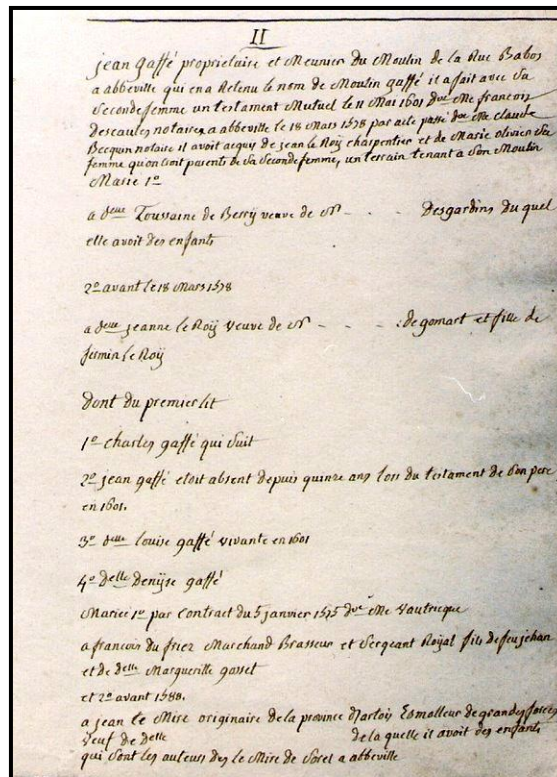 II
jean gaffé proprietaire et Meunier du Moulin de la Rue Babos
a abbeville qui en a Retenu le nom de Moulin gaffé il a fait avec Sa
Seconde femme un testament Mutuel le 11 Mai 1601 dvt Me francois
descaules notaire a abbeville le 18 Mars 1578 par acte passé dvt Me claude
Becquin notaire il avoit acquy de jean le Roÿ charpentier et de Marie olivier Sa
femme qu'on croit parents de Sa Seconde femme, un terrain tenant a Son Moulin
Marié 1º
a delle Toussaine de Berrÿ veuve de N - . . . Desgardins du quel
elle avoit des enfants
2º avant le 18 Mars 1578
a delle jeanne le Roÿ veuve de N - . - . de gomart et fille de
firmin le Roÿ
dont du premier lit
1º charles gaffé qui Suit
2º jean gaffé etoit absent depuis quinze ans lors du testament de Son pere
en 1601.
3º delle louise gaffé vivante en 1601
4º Delle Denÿse gaffé
Mariée 1º par Contract du 5 janvier 1575 dvt Me Vautricque
a francois du friez Marchand Brasseur et Sergeant Roÿal fils de feu jehan
et de delle Marguerille gosset
et 2º avant 1588.
a jean le Mire originaire de la province d'artois Esmolleur de grandes forces
veuf de delle de la quelle il avoit des enfants
qui Sont les auteurs des le Mire de Sorel a abbeville